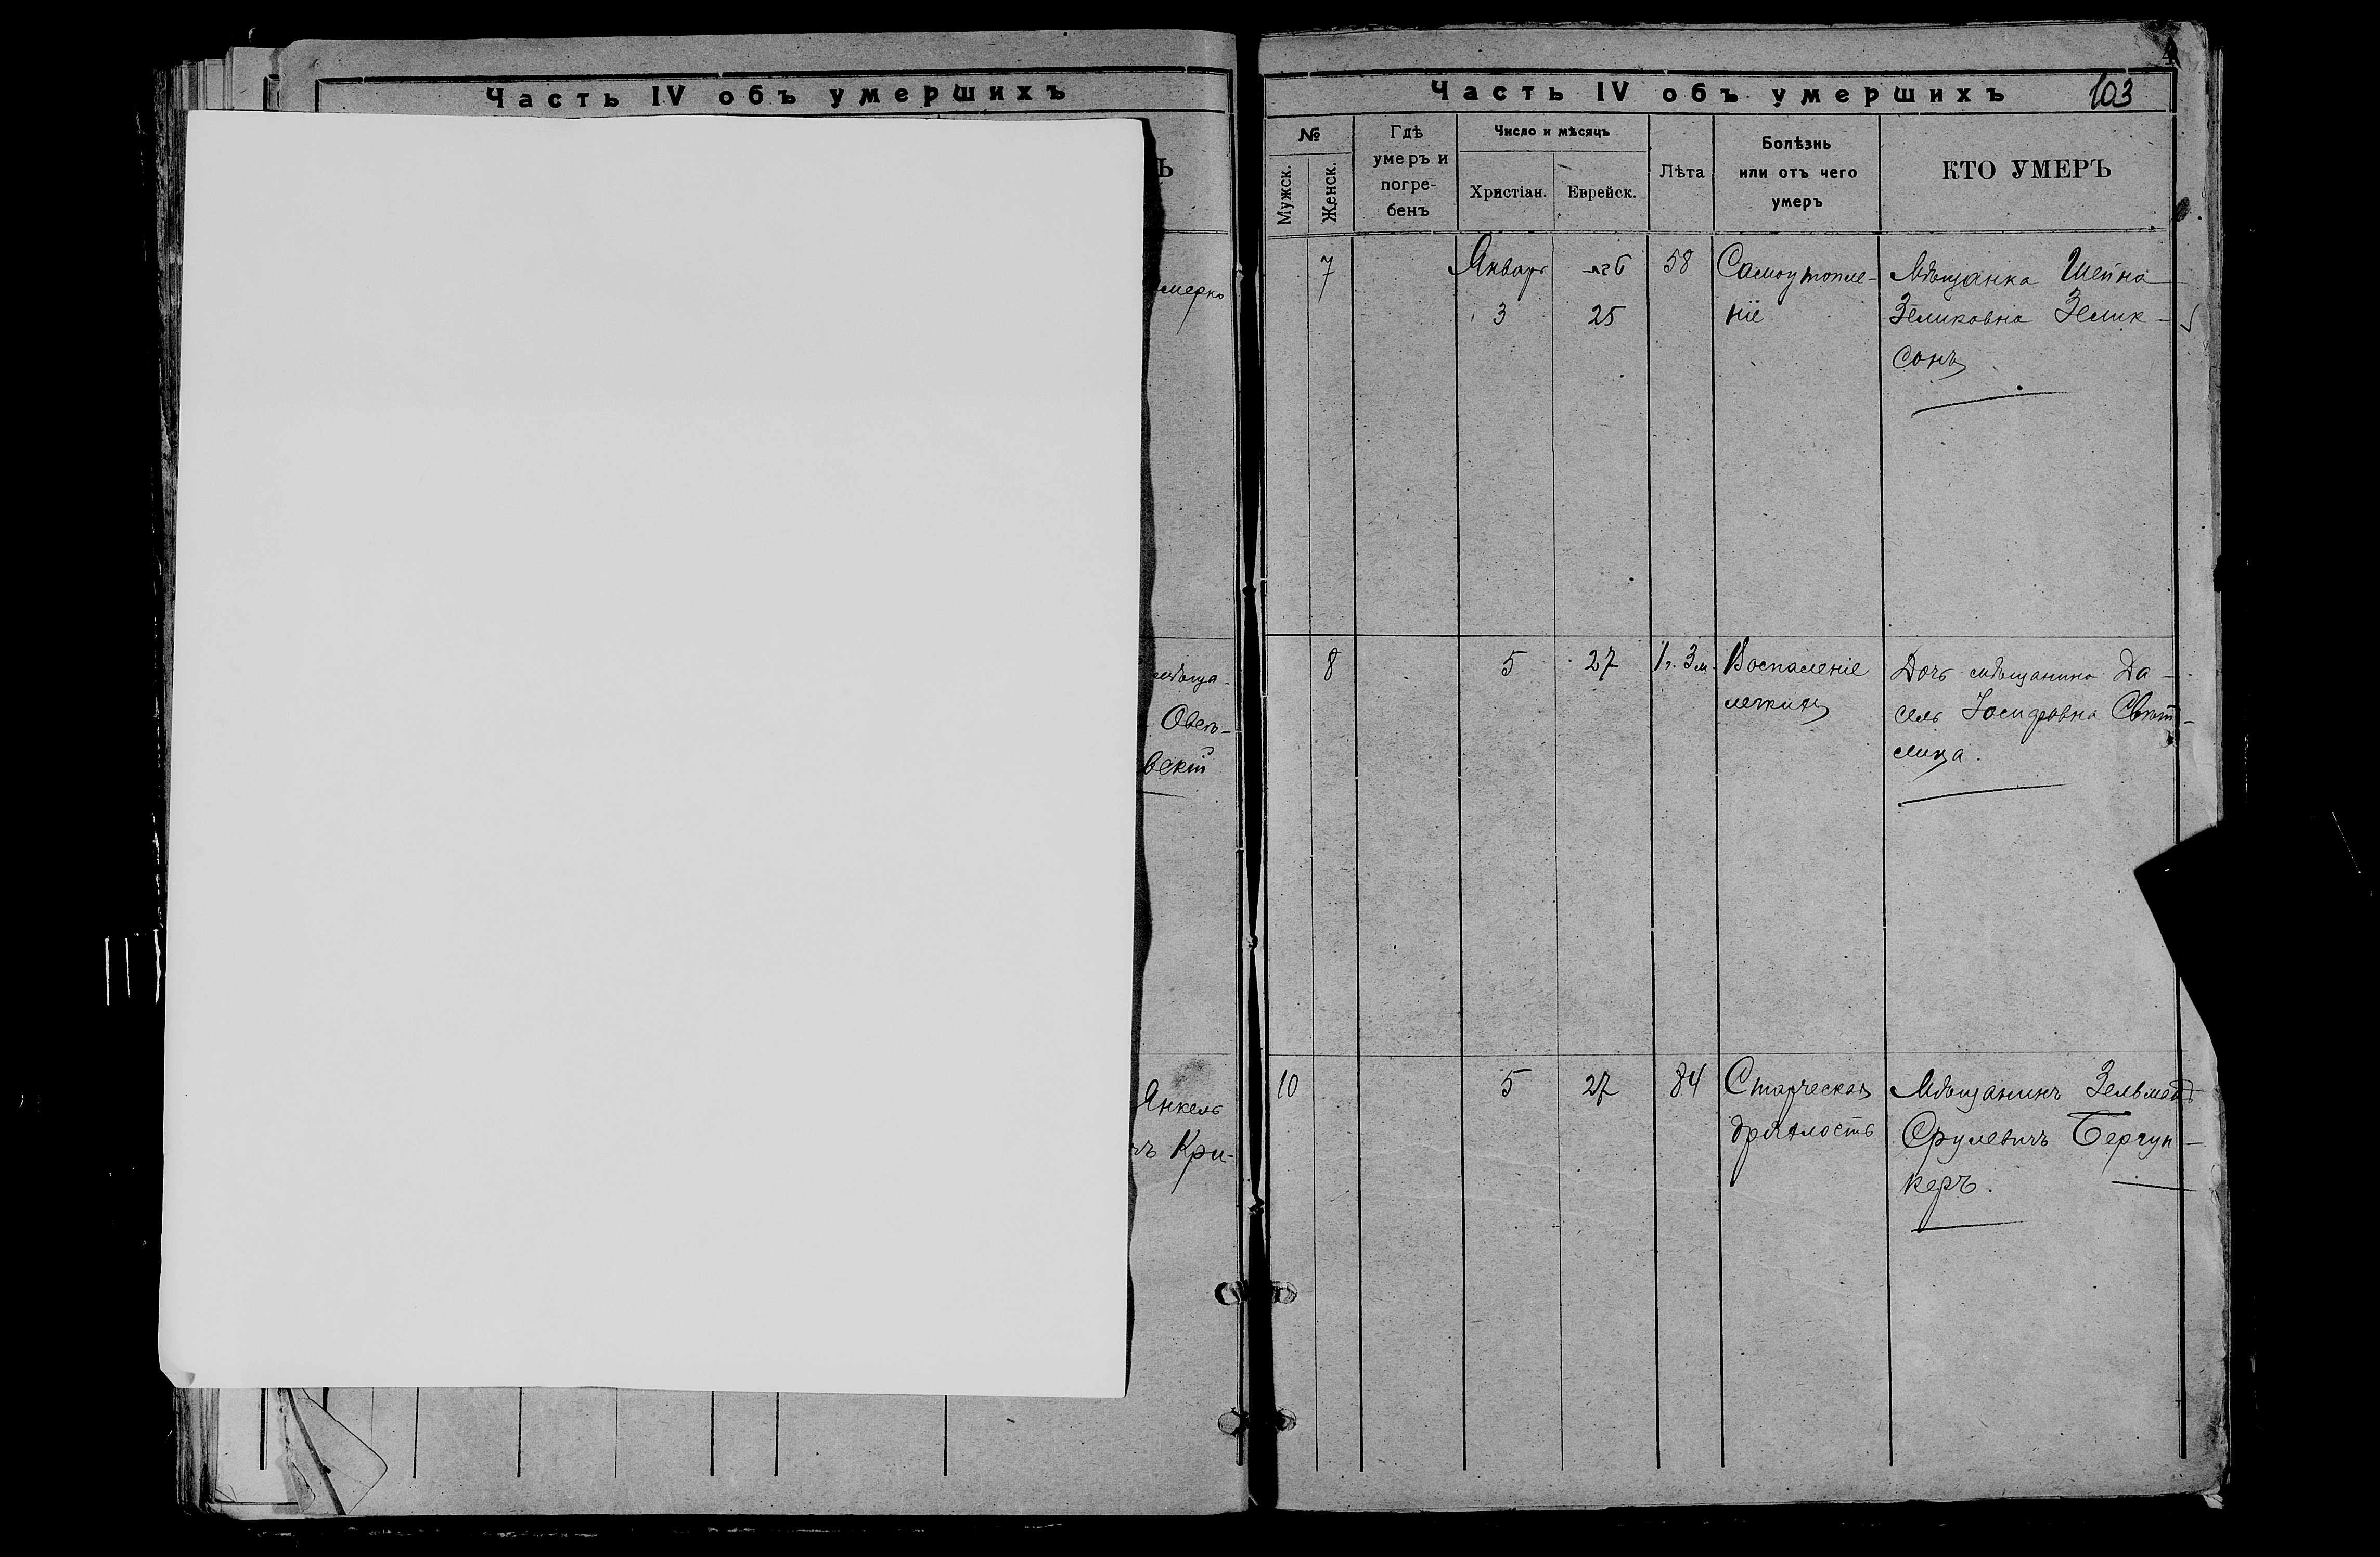 Часть IV объ умершихъ
Ъ
мерко
мѣща-
Овсѣ-
вскій
Янкель
чъ Кри-
4
Часть IV объ умершихъ
103
№
Мужск.
Женск.
Гдѣ
умеръ и
погре-
бенъ
Число и мѣсяцъ
Христіан.
Еврейск.
Лѣта
Болѣзнь
или отъ чего
умеръ
КТО УМЕРЪ
7
Январь
3
25
58
Самоутопле-
ніе
Мѣщанка Шейна
Зеликовна Зелик-
сонъ
8
5
27
1 г. 3 м.
Воспаленіе
легкихъ
Дочь мѣщанина Да-
сель Іосифовна Свѣт-
лица.
10
5
27
84
Старческая
дряхлость
Мѣщанинъ Зельманъ
Срулевичъ Бергун-
керъ.